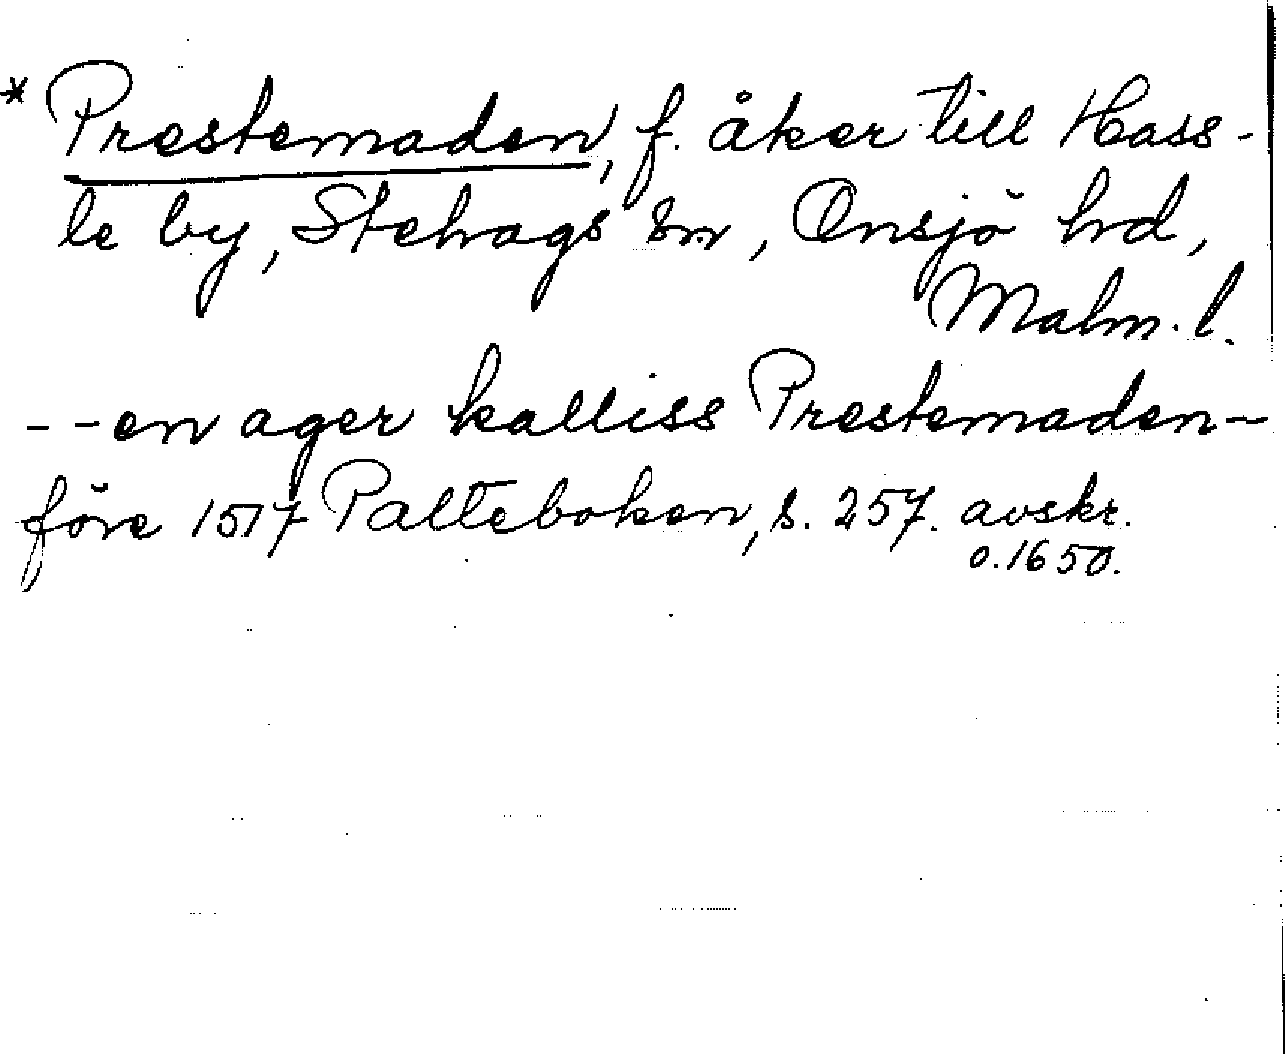 * Prestemaden, f. åker till Hass-
le by, Stehags sn, Onsjö hd,
Malm. l.
- - en ager kalliss Prestemaden -
före 1517 Palteboken, s. 257. avskr.
o. 1650.